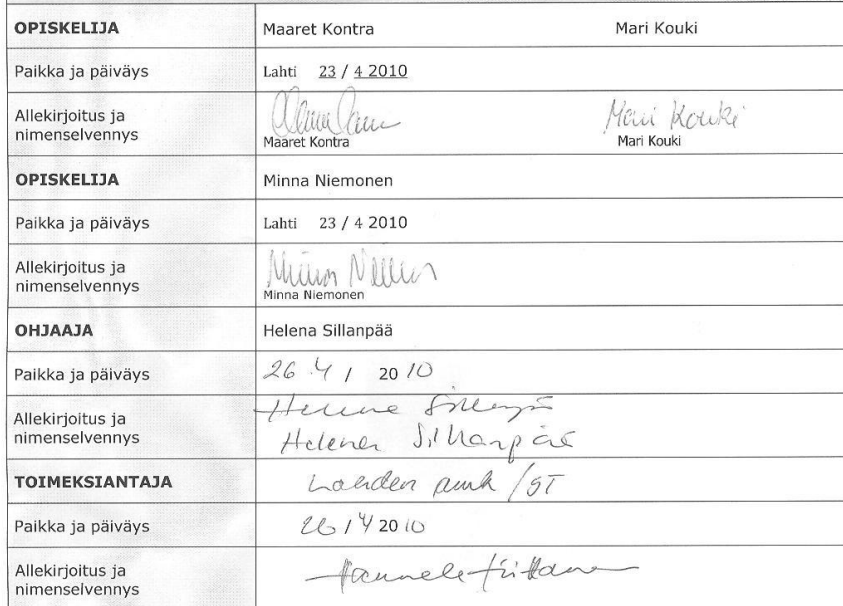 OPISKELIJA Maaret Kontra Mari Kouki
Paikka ja päiväys Lahti 23 / 4 2010
Allekirjoitus ja
nimenselvennys Mari Kouki
Maaret Kontra Mari Kouki
OPISKELIJA Minna Niemonen
Paikka ja päiväys Lahti 23 / 4 2010
Allekirjoitus ja
nimenselvennys
Minna Niemonen
OHJAAJA Helena Sillanpää
Paikka ja päiväys 26.4 / 2010
Allekirjoitus ja Helena Sillanpää
nimenselvennys Helena Sillanpää
TOIMEKSIANTAJA Lahden amk /ST
Paikka ja päiväys 26 / 4 2010
Allekirjoitus ja Hannele
nimenselvennys